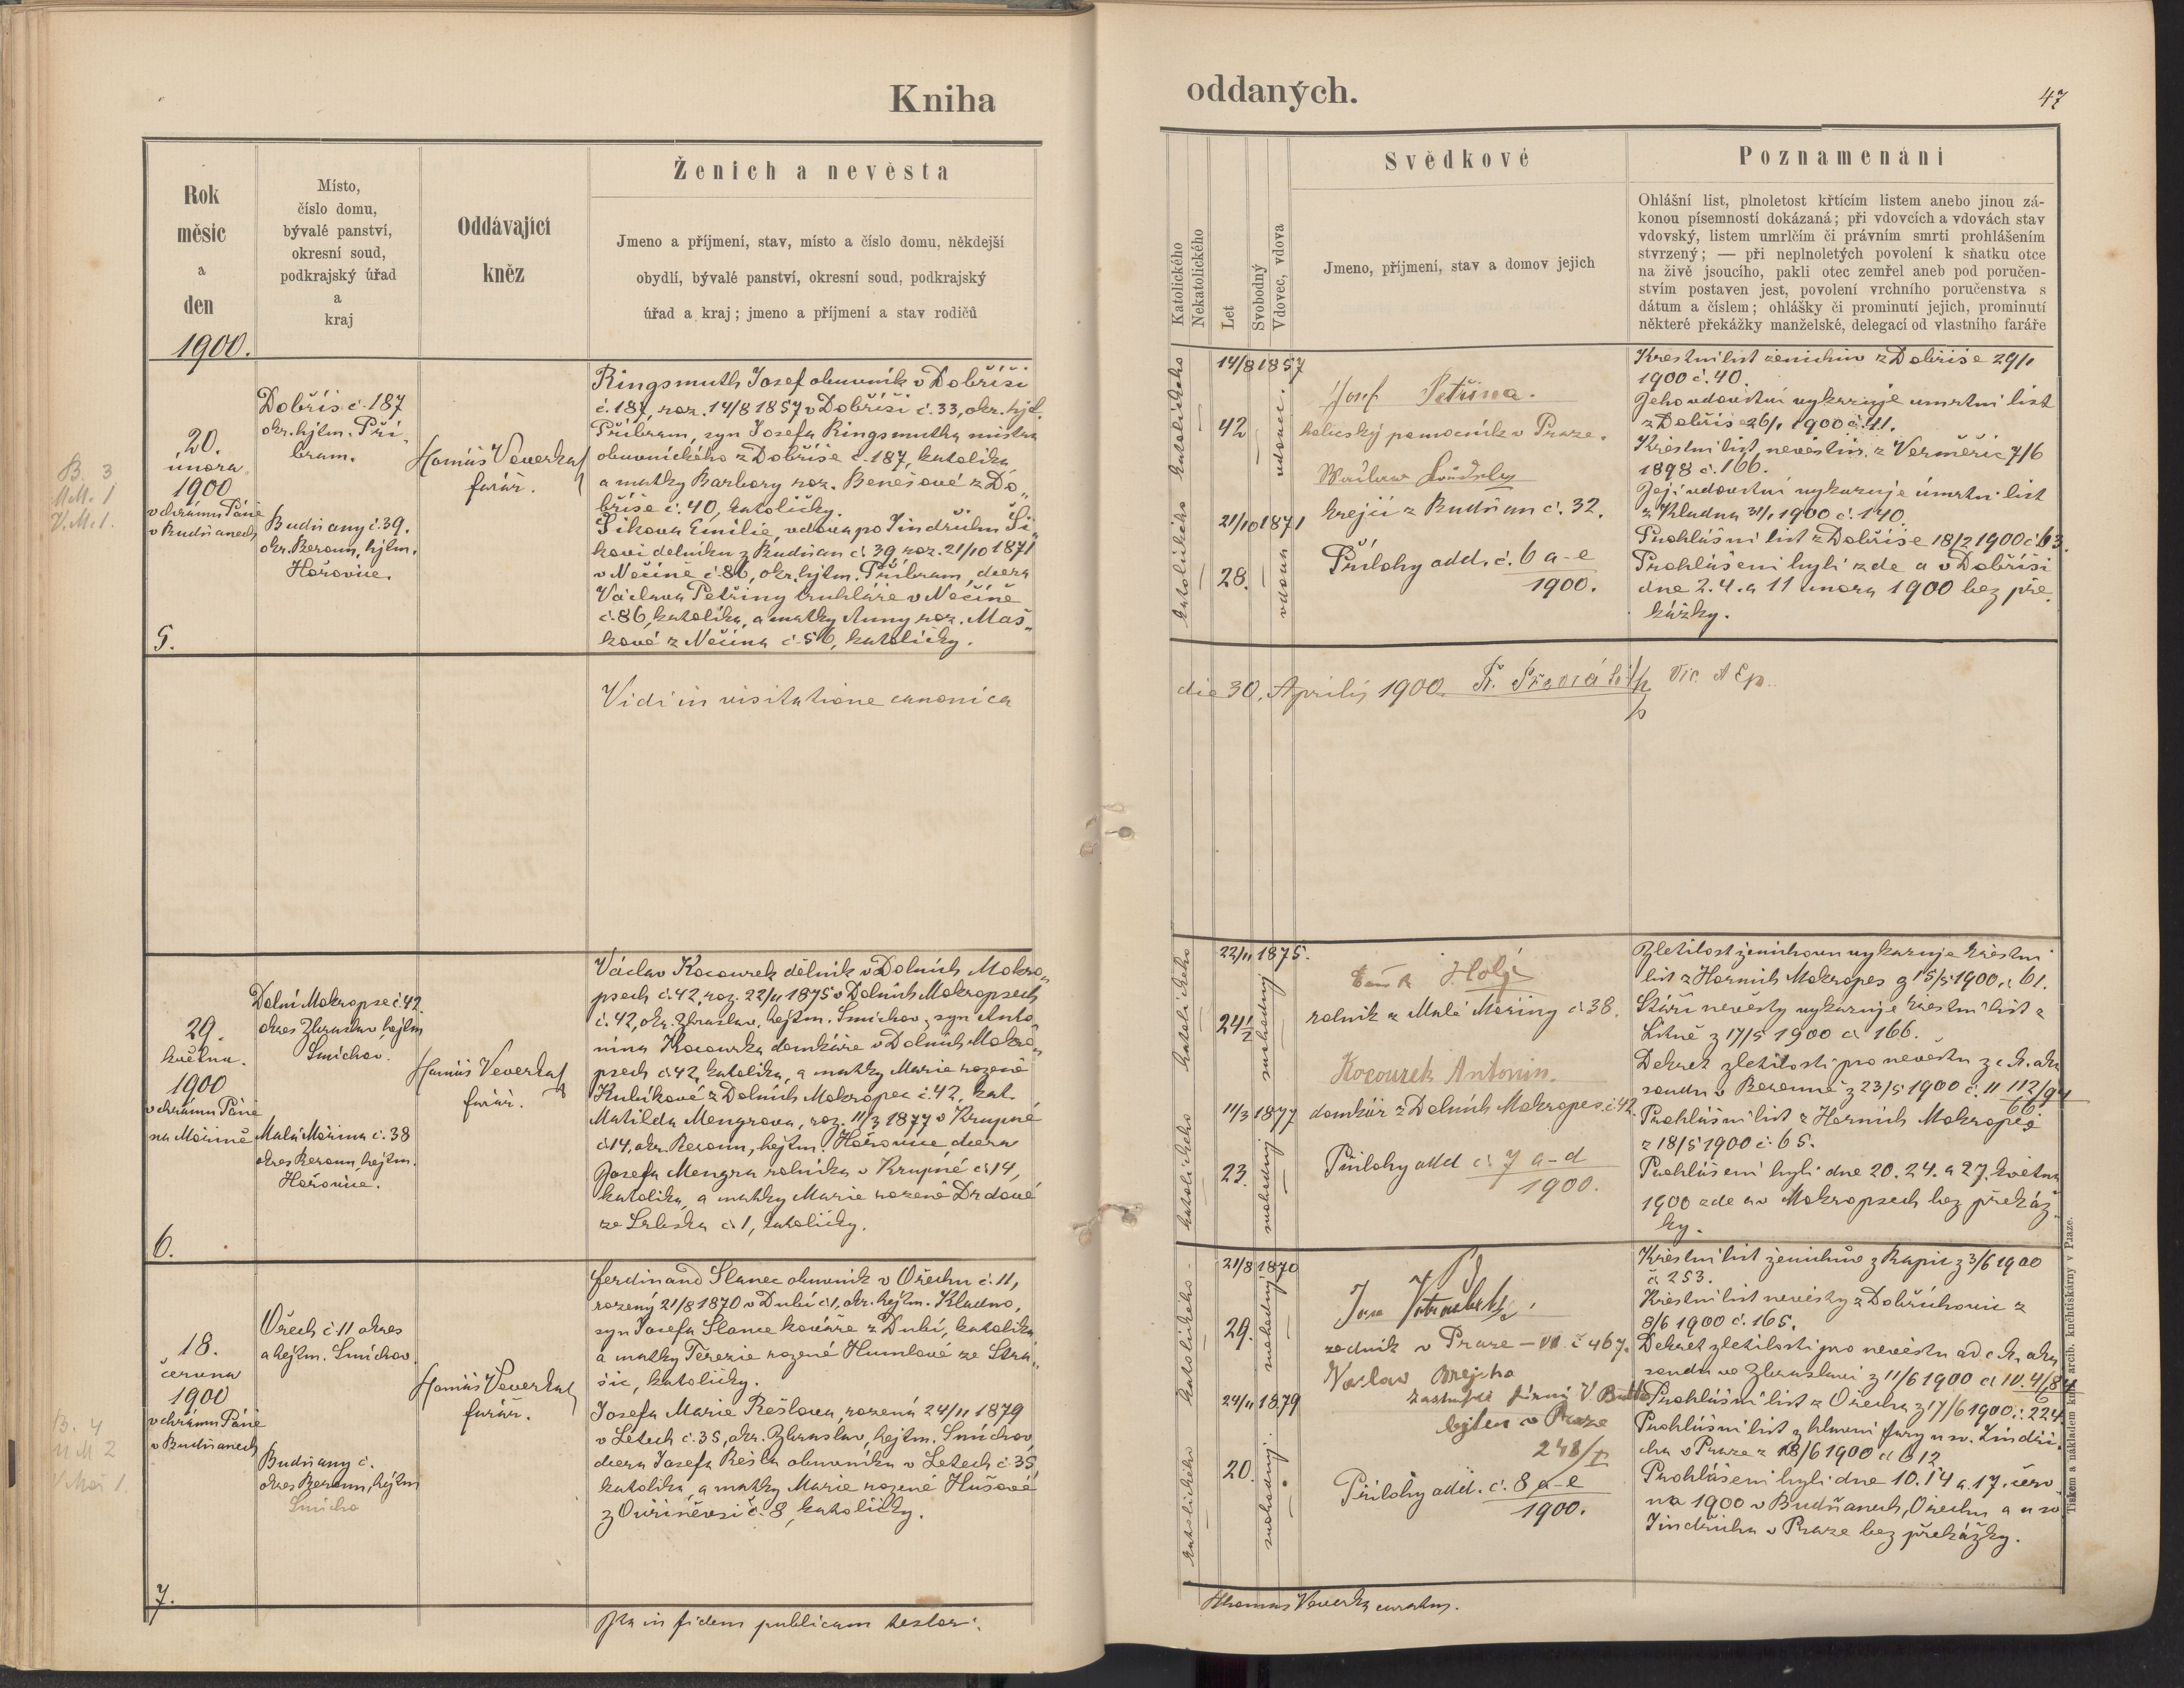 Kniha
oddaných.
47
Rok
měsíc
a
den
1900.
Místo,
číslo domu,
bývalé panství,
okresní soud,
podkrajský úřad
a
kraj
Oddávající
kněz
Ženich a nevěsta
Jmeno a příjmení, stav, místo a číslo domu, někdejší
obydlí, bývalé panství, okresní soud, podkrajský
úřad a kraj; jmeno a příjmení a stav rodičů
Katolického
Nekatolického
Let
Svobodný
Vdovec, vdova
Svědkové
Jmeno, příjmení, stav a domov jejich
Poznamenání
Ohlášní list, plnoletost křtícím listem anebo jinou zá-
konou písemností dokázaná; při vdovcích a vdovách stav
vdovský, listem umrlčím či právním smrti prohlášením
stvrzený; — při neplnoletých povolení k sňatku otce
na živě jsoucího, pakli otec zemřel aneb pod poručen-
stvím postaven jest, povolení vrchního poručenstva s
dátum a číslem; ohlášky či prominutí jejich, prominutí
některé překážky manželské, delegací od vlastního faráře
B. 3
M.M. 1
V.M. 1.
20.
února
1900
v chrámu Páně
v Budňanech
5.
Dobříš č. 187
okr. hejtm. Pří-
bram.
Budňany č. 39.
okr. Beroun, hejtm.
Hořovice.
Tomáš Veverka
farář.
Ringsmuth Josef obuvník v Dobříši
č. 187, nar. 14/8 1857 v Dobříši č. 33, okr. hejt.
Příbram, syn Josefa Ringsmutha mistra
obuvnického z Dobříše č. 187, katolíka
a matky Barbory roz. Benešové z Do-
bříše č. 40, katoličky.
Šikova Emilie, vdova po Jindřichu Ši-
kovi dělníku z Budňan č. 39, roz. 21/10 1871
v Nečíně č. 86, okr. hejtm. Příbram, dcera
Václava Petřiny truhláře v Nečíně
č. 86, katolíka, a matky Anny roz. Maš-
kové z Nečína č. 56, katoličky.
katolického katolického
14/8 1857
42
vdovec.
21/10 1871
28.
vdova
Josef Petřina.
holičský pomocník v Praze.
krejčí z Budňan č. 32.
Přílohy add. č. 6 a-e
1900.
Křestní list ženichův z Dobříše 29/1
1900 č. 40.
Jeho vdovství vykazuje úmrtní list
z Dobříše 26/1 1900 č. 41.
Křestní list nevěstin z Verměřic 7/6
1898 č. 166.
Její vdovství vykazuje úmrtní list
z Kladna 31/1 1900 č. 140.
Prohlášní list z Dobříše 18/2 1900 č. 63.
Prohlášeni byli zde a v Dobříši
dne 2. 4. a 11 února 1900 bez pře-
kážky.
Vidi in visitatione canonica
die 30. Aprilis 1900.
29.
května.
1900
v chrámu Páně
na Mořině
6.
Dolní Mokropse č. 42.
okres Zbraslav, hejtm
Smíchov.
Malá Mořina č. 38
okres Beroun, hejtm.
Hořovice.
Tomáš Veverka
farář.
Václav Kocourek dělník v Dolních Mokro-
psech č. 42, roz. 22/11 1875 v Dolních Mokropsech
č. 42, okr. Zbraslav, hejtm. Smíchov, syn Anto-
nína Kocourka domkáře v Dolních Mokro-
psech č. 42, katolíka, a matky Marie rozené
Kubíkové z Dolních Mokropes č. 42, kat.
Matilda Mengrova, roz. 11/3 1877 v Krupné
č. 14, okr. Beroun, hejtm. Hořovice, dcera
Josefa Mengra rolníka v Krupné č. 14,
katolíka, a matky Marie rozené Drdové
ze Srbska č. 1, katoličky.
katolického katolického
22/11 1875.
24½
svobodný
11/3 1877
23.
svobodný
rolník z Malé Mořiny č. 38.
Kocourek Antonín.
domkář z Dolních Mokropes č. 42.
Přílohy add č. 7 a-d
1900.
Zletilost ženichovu vykazuje křestní
list z Horních Mokropes z 15/5 1900 č. 61.
Stáří nevěsty vykazuje křestní list z
Litně z 17/5 1900 č. 166.
Dekret zletilosti pro nevěstu z c. k. okr.
soudu v Berouně z 23/5 1900 č. 11 112/94
66
Prohlášní list z Horních Mokropes
z 18/5 1900 č. 65.
Prohlášeni byli dne 20. 24. a 27. května
1900 zde a v Mokropsech bez překáž-
ky.
B. 4
M M 2
18.
června
1900
v chrámu Páně
v Budňanech
7.
Ořech č. 11 okres
a hejtm. Smíchov.
Budňany č.
okres Beroun, hejtm
Smícho
Tomáš Veverka
farář.
Ferdinand Slanec obuvník v Ořechu č. 11,
rozený 21/8 1870 v Dubí č. 1, okr. hejtm. Kladno,
syn Josefa Slance kováře z Dubí, katolíka,
a matky Terezie rozené Humlové ze Stra-
šic, katoličky.
Josefa Marie Rešlova, rozená 24/11 1879
v Letech č. 35, okr. Zbraslav, hejtm. Smíchov,
dcera Josefa Rešla obuvníka v Letech č. 35
katolíka, a matky Marie rozené Hušové
z Ouřiněvsi č. 8, katoličky.
katolického katolického
21/8 1870
29.
svobodný
24/11 1879
20.
svobodný.
Jan
zedník v Praze – VII č. 467.
Václav Brejcha
zástupce firmy V.
bytem v Praze
248/I
Přílohy add. č. 8 a-e
1900.
Křestní list ženichův z Rapic z 3/6 1900
č. 253.
Křestní list nevěsty z Dobřichovic z
8/6 1900 č. 165.
Dekret zletilosti pro nevěstu od c. k. okr.
soudu ve Zbraslavi z 11/6 1900 č. 10. 4/84
6
Prohlášní list z Ořecha z 17/6 1900 č. 224.
Prohlášní list z hlavní fary u sv. Jindři-
cha v Praze z 18/6 1900 č. 612
Prohlášeni byli dne 10. 14 a 17. červ-
na 1900 v Budňanech, Ořechu a u sv.
Jindřicha v Praze bez překážky.
Ita in fidem publicam testor:
Thomas Veverka curatus.
Tiskem a nákladem kníž. arcib. knihtiskárny v Praze.